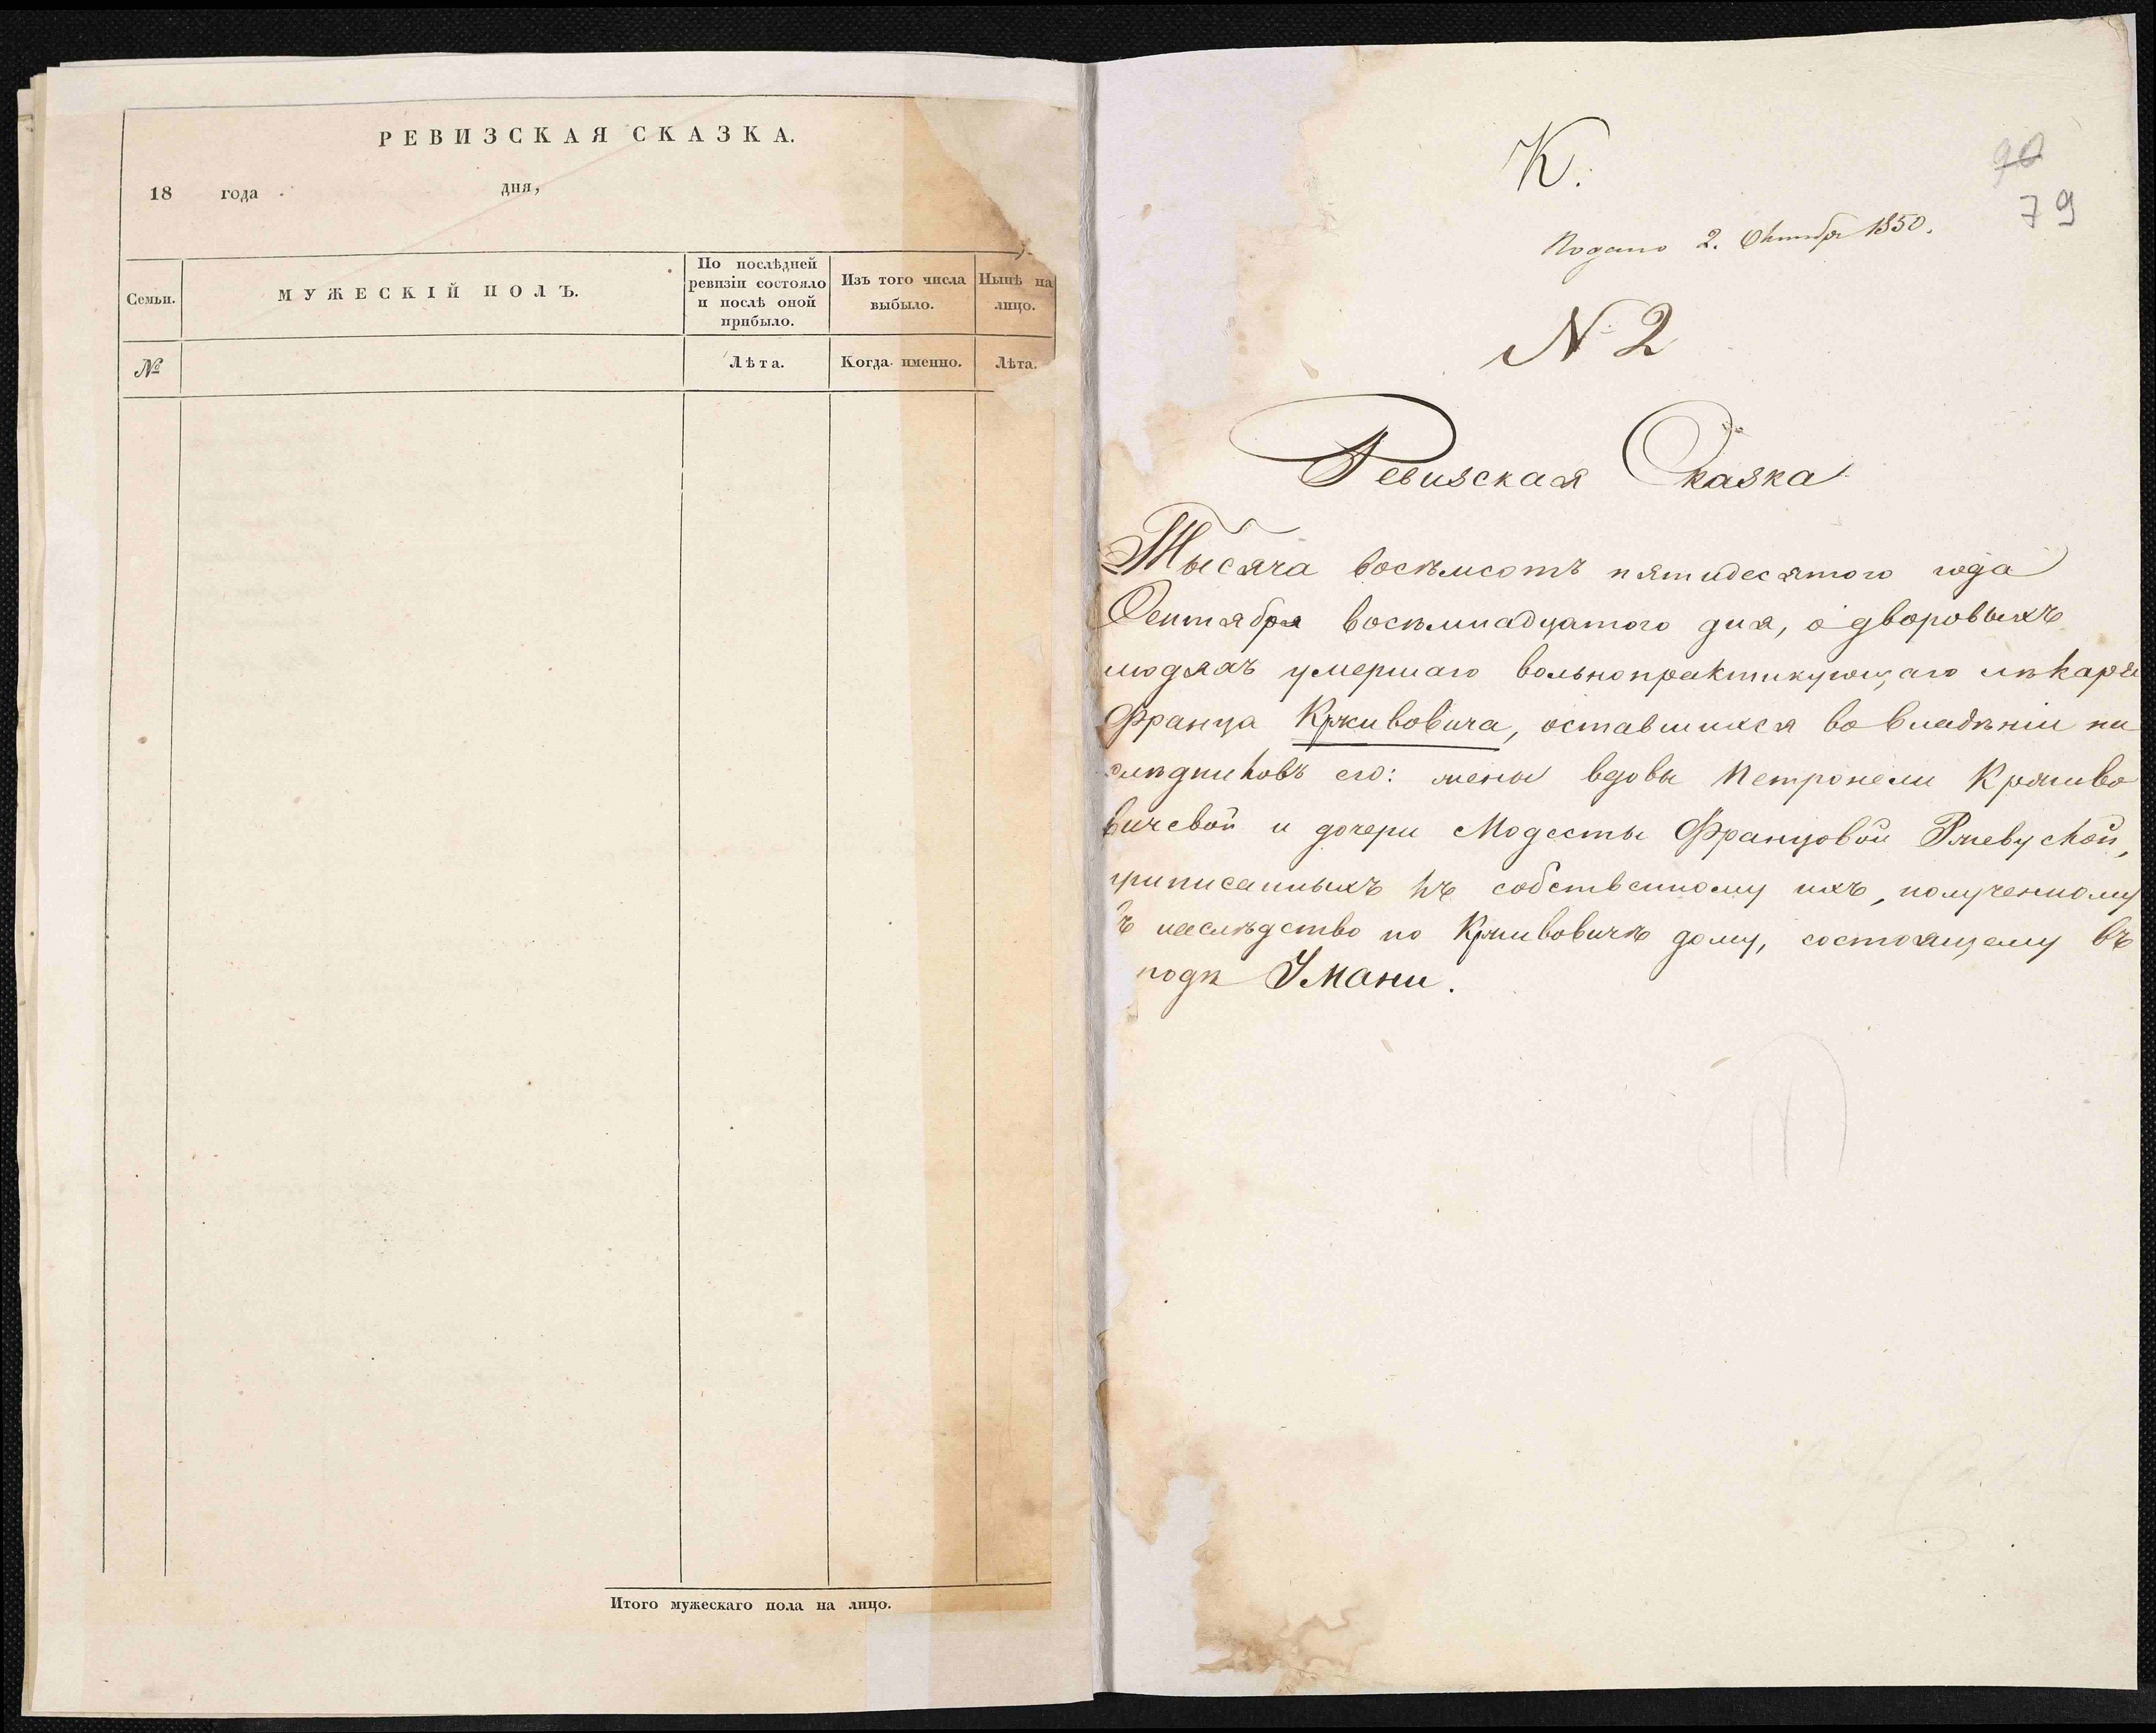 РЕВИЗСКАЯ СКАЗКА.
18 года дня,
Семьи.
МУЖЕСКІЙ ПОЛЪ.
По послѣдней
ревизіи состояло
и послѣ оной
прибыло.
Изъ того числа
выбыло.
Нынѣ на
лицо.
№
Лѣта.
Когда именно.
Лѣта.
Итого мужескаго пола на лицо.
К.
90
79
Подано 2. Октября 1850.
N 2
Ревизская Сказка
Тысяча восѣмсотъ пятидесятого года
Сентября восѣмнадцатого дня, о дворовыхъ
людяхъ умершаго вольнопрактикующаго лѣкаря
Франца Крживовича, оставшихся во владѣніи на
слѣдниковъ его: жены вдовы Петронели Крживо
вичевой и дочери Модесты Францовой Ржевуской,
приписанныхъ къ собственному ихъ, полученному
ъ наслѣдство по Крживовичѣ дому, состоящему въ
родѣ Умани.